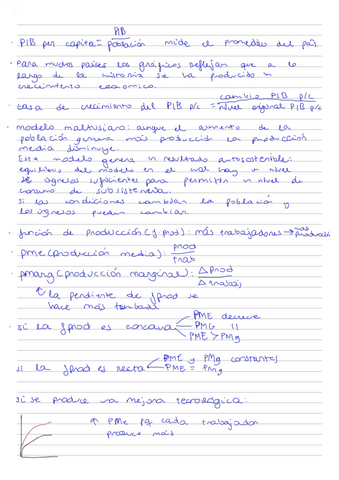 · PIB per capita = PIB / población mide el promedio del país
· Para muchos países los gráficos reflejan que a lo
largo de la historia se ha producido un
crecimiento económico.
· tasa de crecimiento del PIB p/c = cambio PIB p/c / nivel original PIB p/c
· modelo malthusiano: aunque el aumento de la
población genera más producción la producción
media disminuye.
Este modelo genera un resultado autosostenible:
equilibrio del modelo en el cual hay un nivel
de ingresos suficientes para permitir un nivel de
consumo de subsistencia.
Si las condiciones cambian la población y
los ingresos pueden cambiar.
· función de producción (f. prod): más trabajadores → más producción
· pme (producción media): prod / trab
· pmarg (producción marginal): Δ prod / Δ trabaj
↑ la pendiente de fprod se
hace más tumbada
· si la fprod es cóncava
PME decrece
PMG ||
PME > PMg
si la fprod es recta
PME y PMg constantes
PME = PMg
si se produce una mejora tecnológica:
↑ PMe pq cada trabajador
produce más